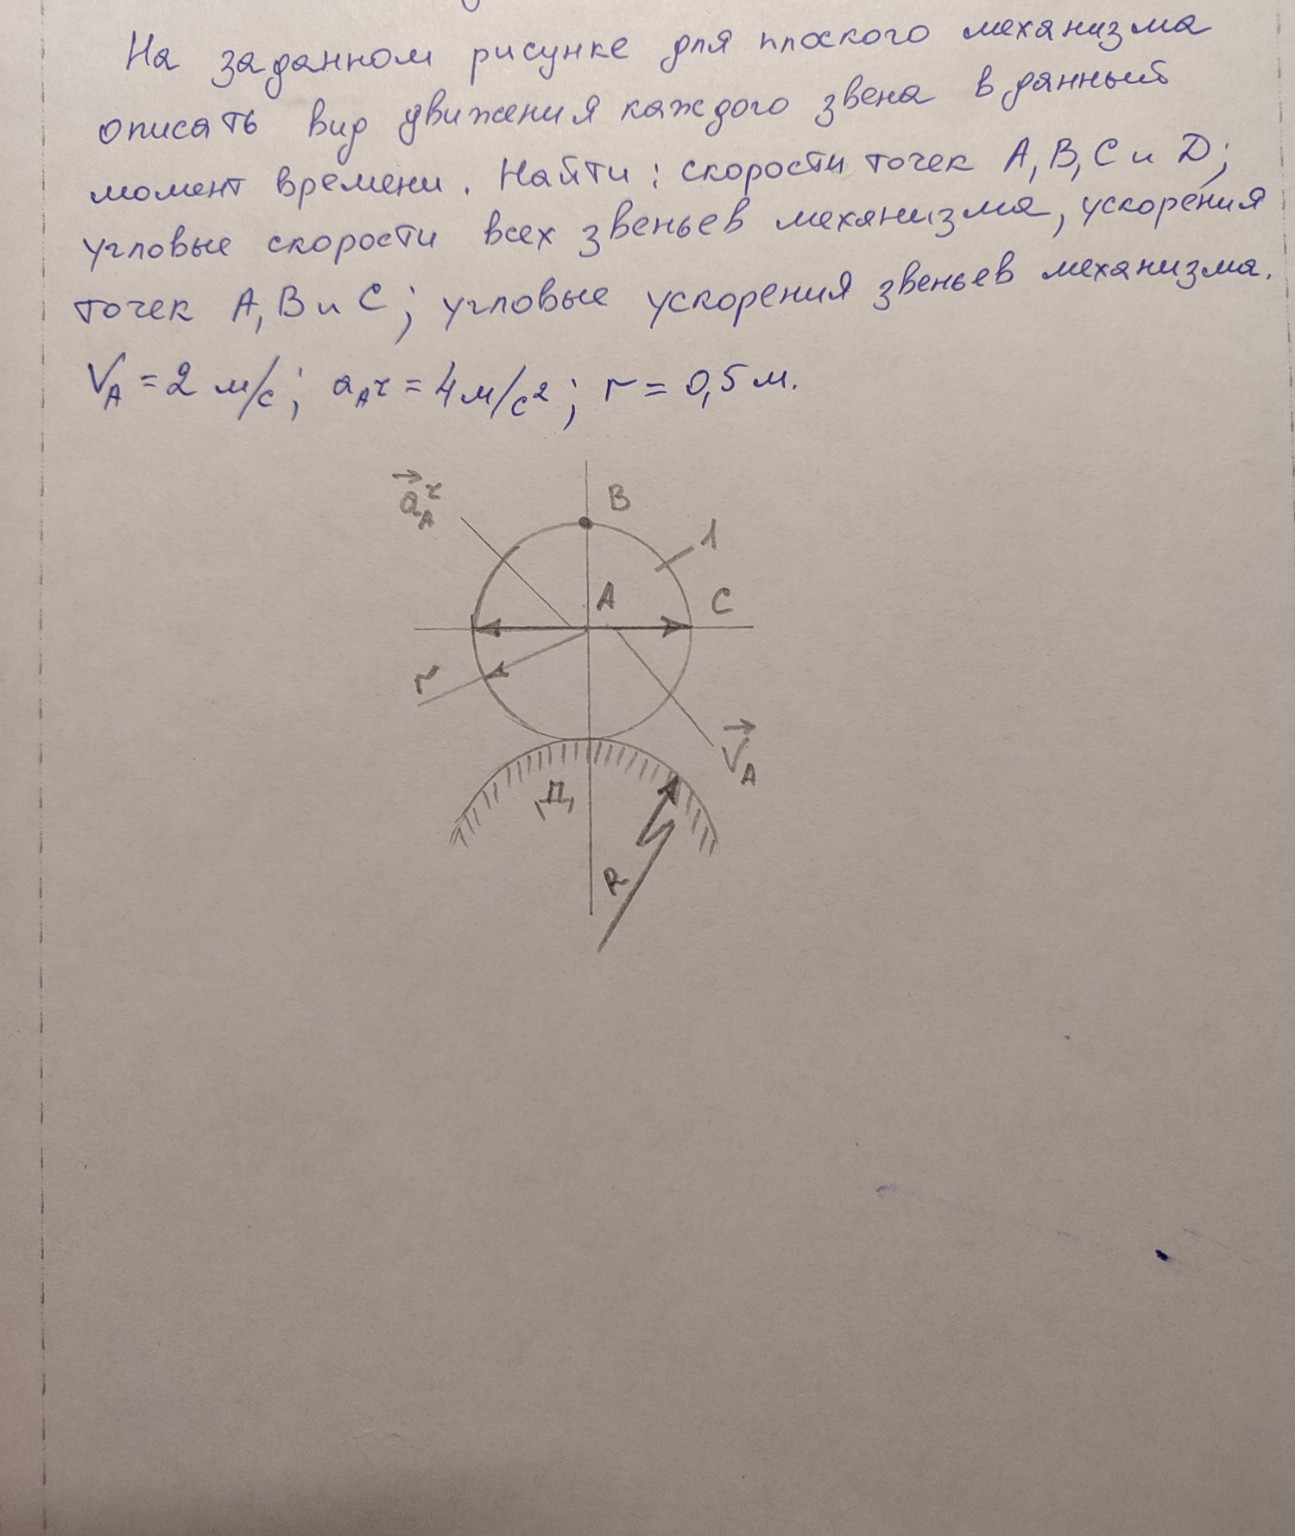 На заданном рисунке для плоского механизма
описать вид движения каждого звена в данный
момент времени. Найти: скорости точек A, B, C и D;
угловые скорости всех звеньев механизма, ускорения
точек A, B и C; угловые ускорения звеньев механизма.
V_A = 2 м/с; a_A^τ = 4 м/с²; r = 0,5 м.
a_A^τ
B
1
A
C
r
V_A
Д
R